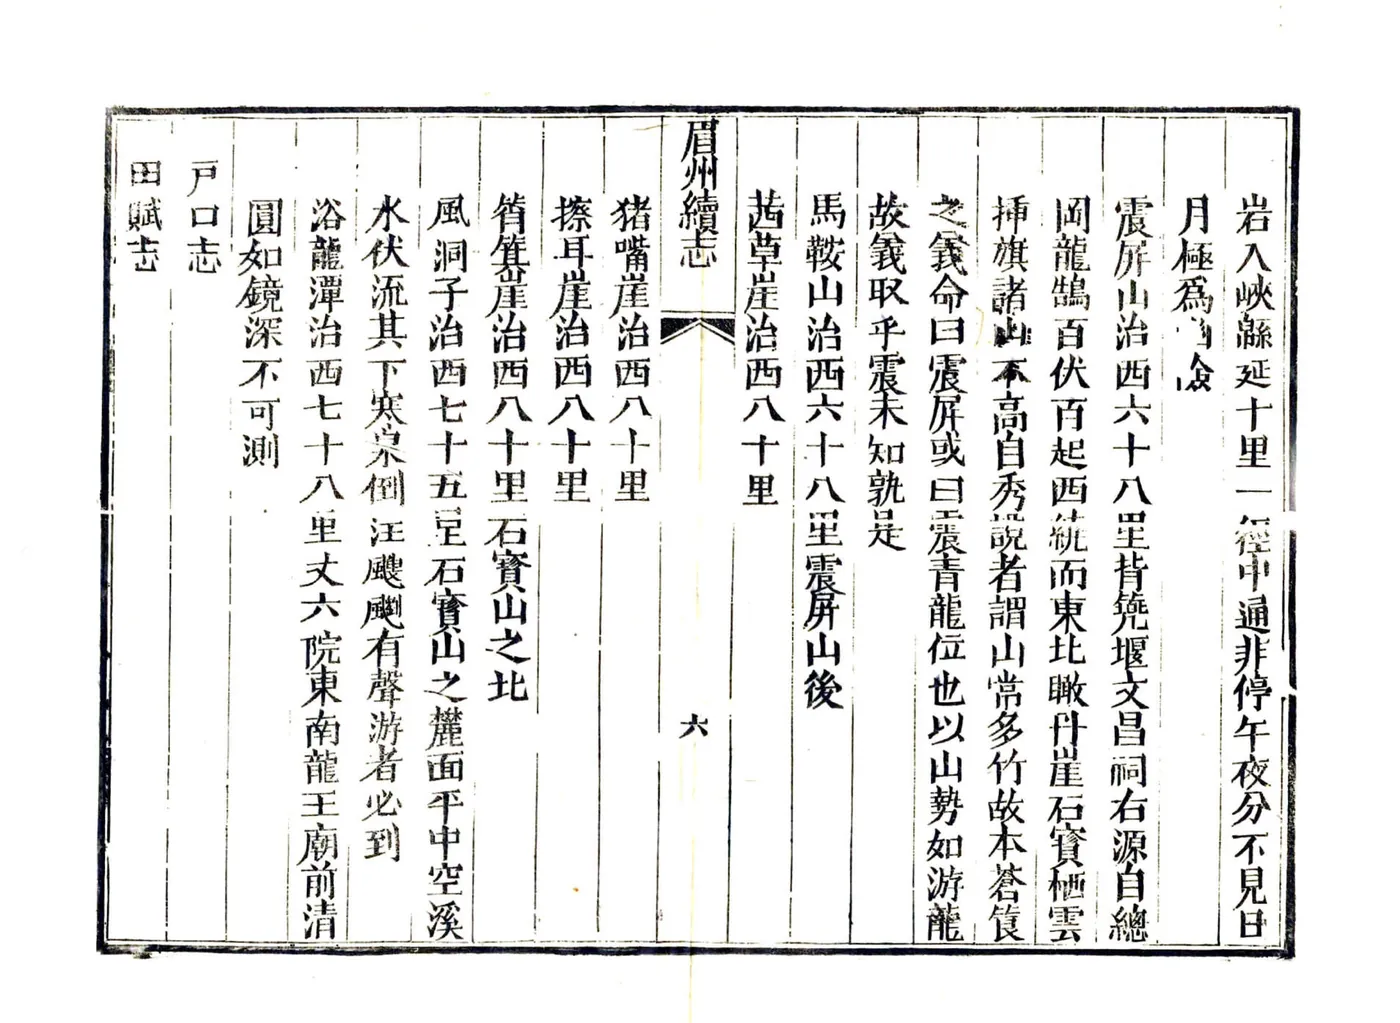 岩入峽緜延十里一徑中通非停午夜分不見日
月極爲幽
震屏山治西六十八里背筦堰文昌祠右源自總
岡龍鵠百伏百起西統而東北瞰丹崖石寶栖雲
挿旗諸山不高自秀說者謂山常多竹故本蒼筤
之義命曰震屏或曰震青龍位也以山勢如游龍
故義取乎震未知孰是
馬鞍山治西六十八里震屏山後
茜草崖治西八十里
眉州續志
六
猪嘴崖治西八十里
擦耳崖治西八十里
筲箕崖治西八十里石寶山之北
風洞子治西七十五里石寶山之麓面平中空溪
水伏流其下寒泉倒汪颼飀有聲游者必到
浴龍潭治西七十八里丈六院東南龍王廟前清
圓如鏡深不可測
戸口志
田賦志